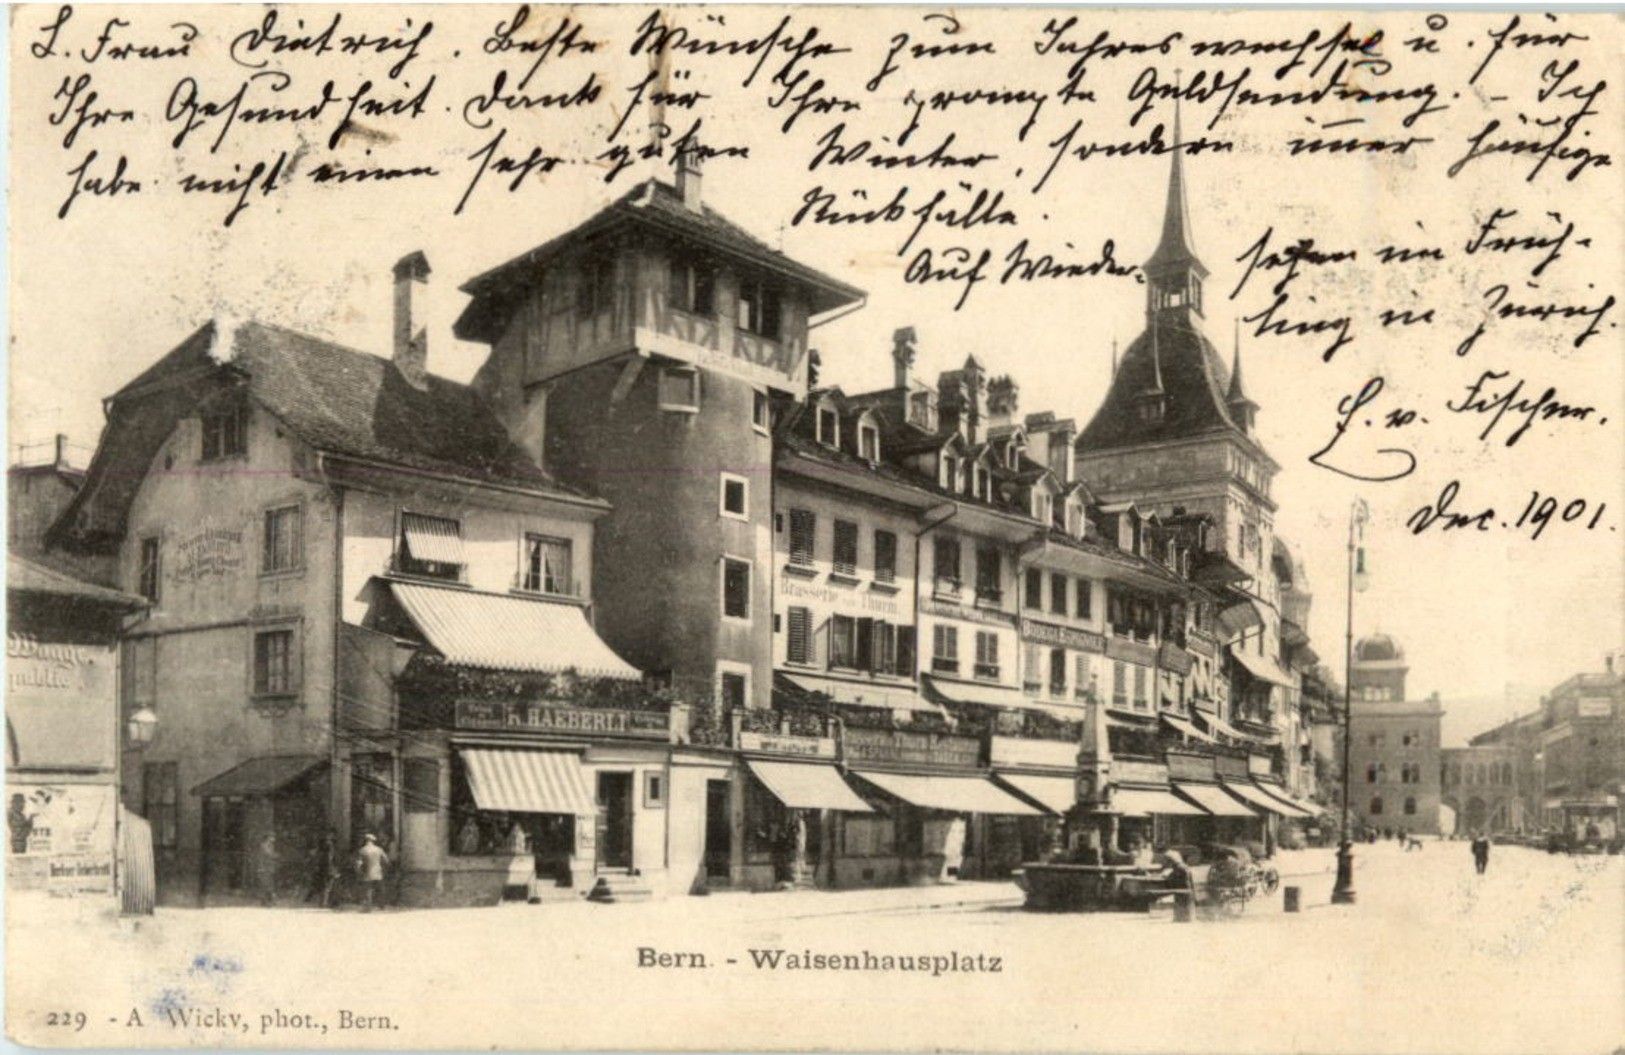 L. Frau Dietrich. Beste Wünsche zum Jahreswechsel u. für
Ihre Gesundheit. Dank für Ihre prompte Geldsendung. - Ich
habe nicht einen sehr guten Winter, sondern im̅er häufige
Rückfälle.
Auf Wieder-
sehen im Früh-
ling in Zürich.
v. Fischer.
Dec. 1901.
Brasserie zum Thurm.
HAEBERLI
Bern. - Waisenhausplatz
229 - A Wicky, phot., Bern.